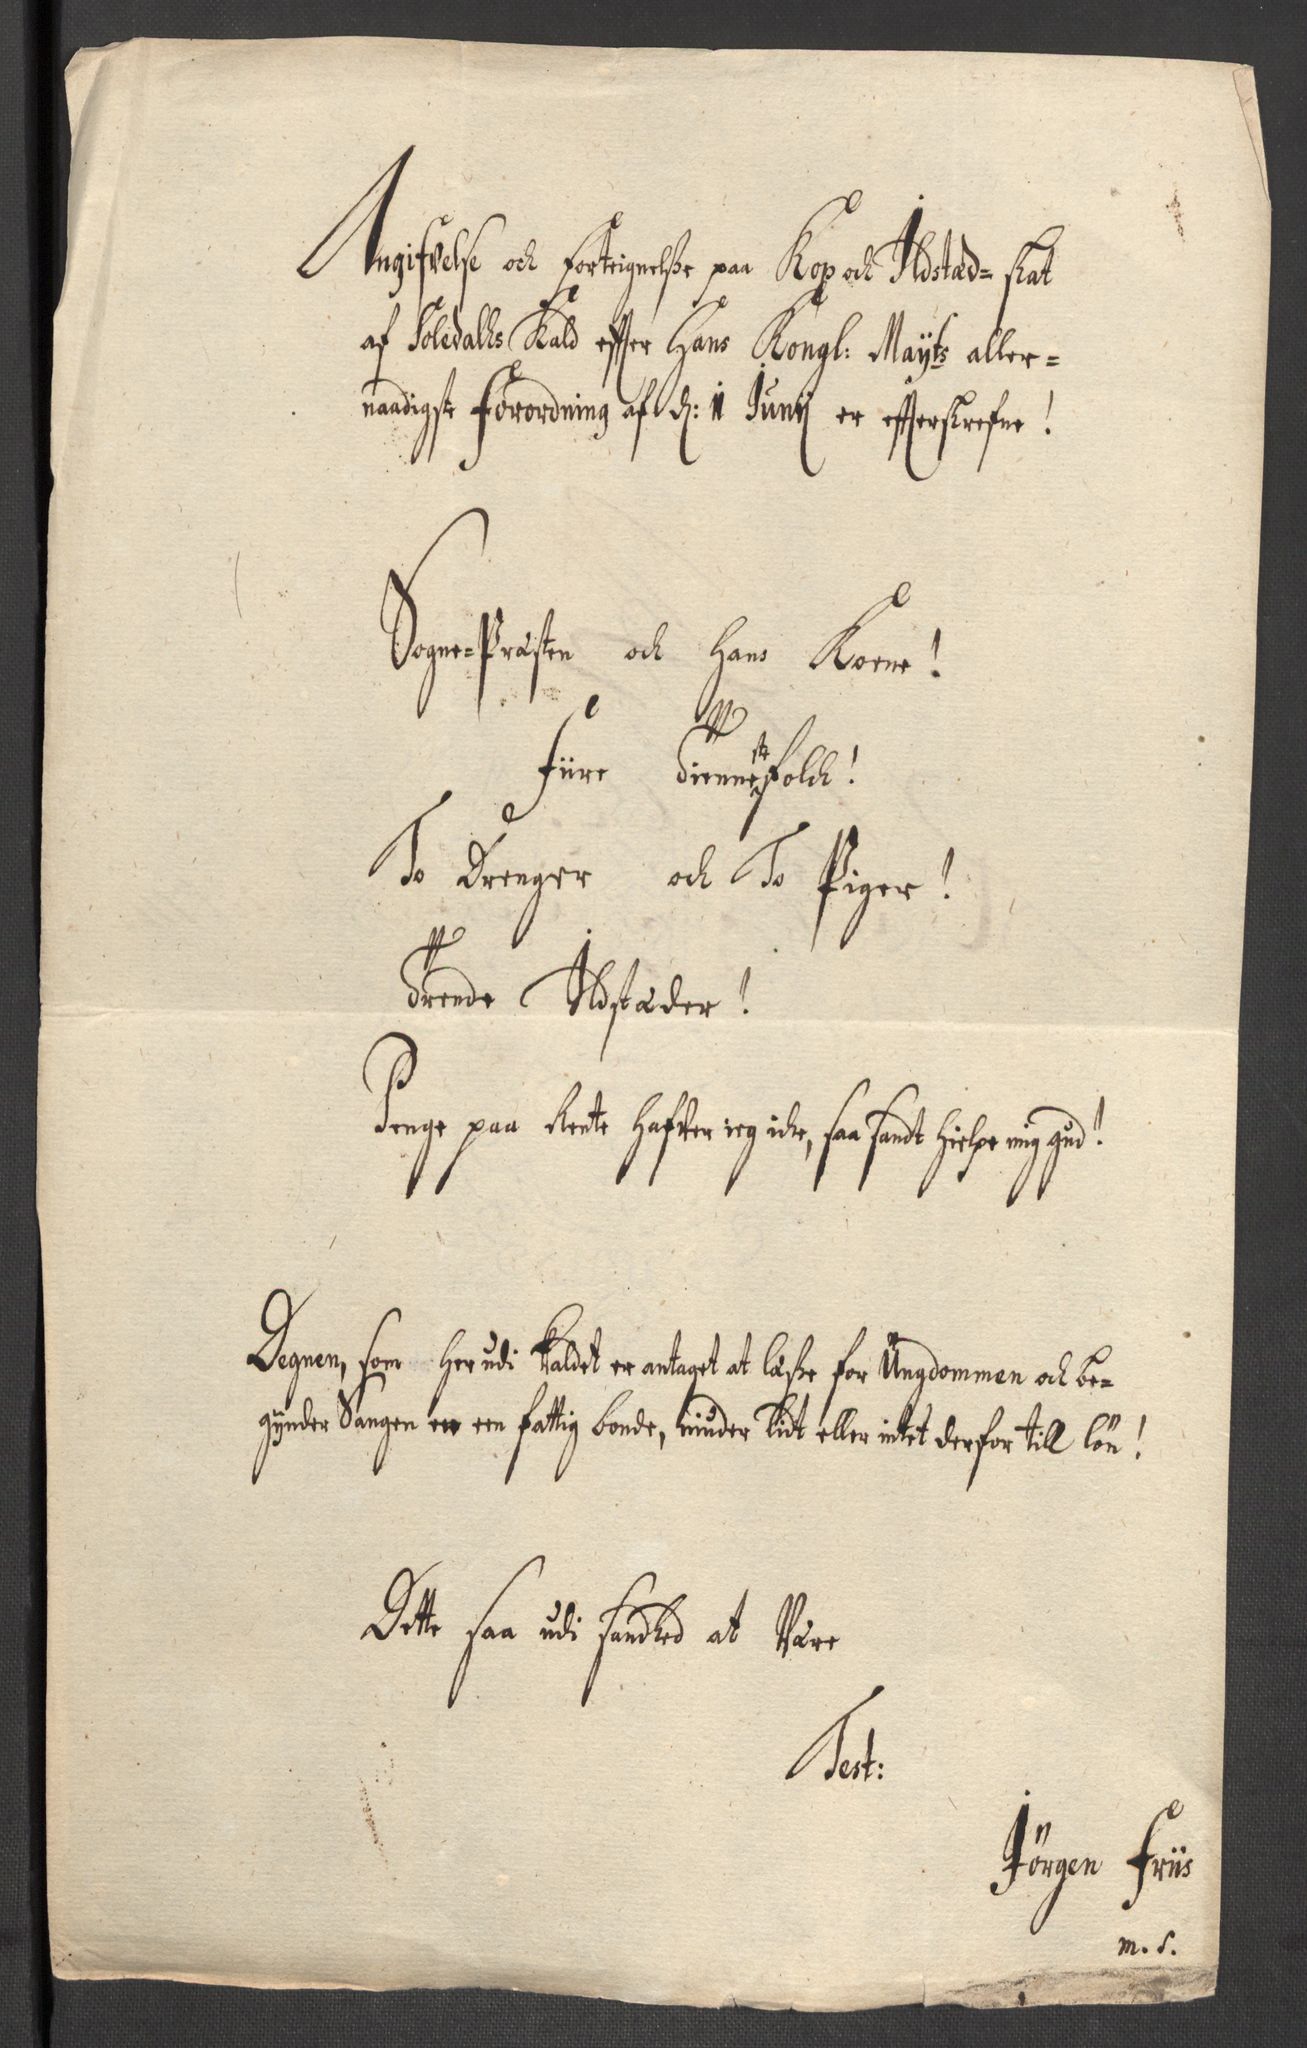 Angifvelse och forteignelsse paa Kop och Ildstæd= skat
af Foledalls Kald effter Hans Kongl: Mayts aller=
naadigste forordning af d: 11 Junij er effterskrefne!
Sogne=Præsten och Hans Koene!
fiire Tienniste folch!
To Drenger och To Piger!
Trende Ildstæder!
Penge paa Rente hafver ieg iche, saa sandt hielpe mig gud!
Degnen, som her udi Kaldet er antaget at læsse for Ungdommen och be=
gynder Sangen er een fattig bonde, niuder lidt eller intet derfor till lön!
Dette saa udi sandhed at Være
Test:
Jörgen Friis
m. s.